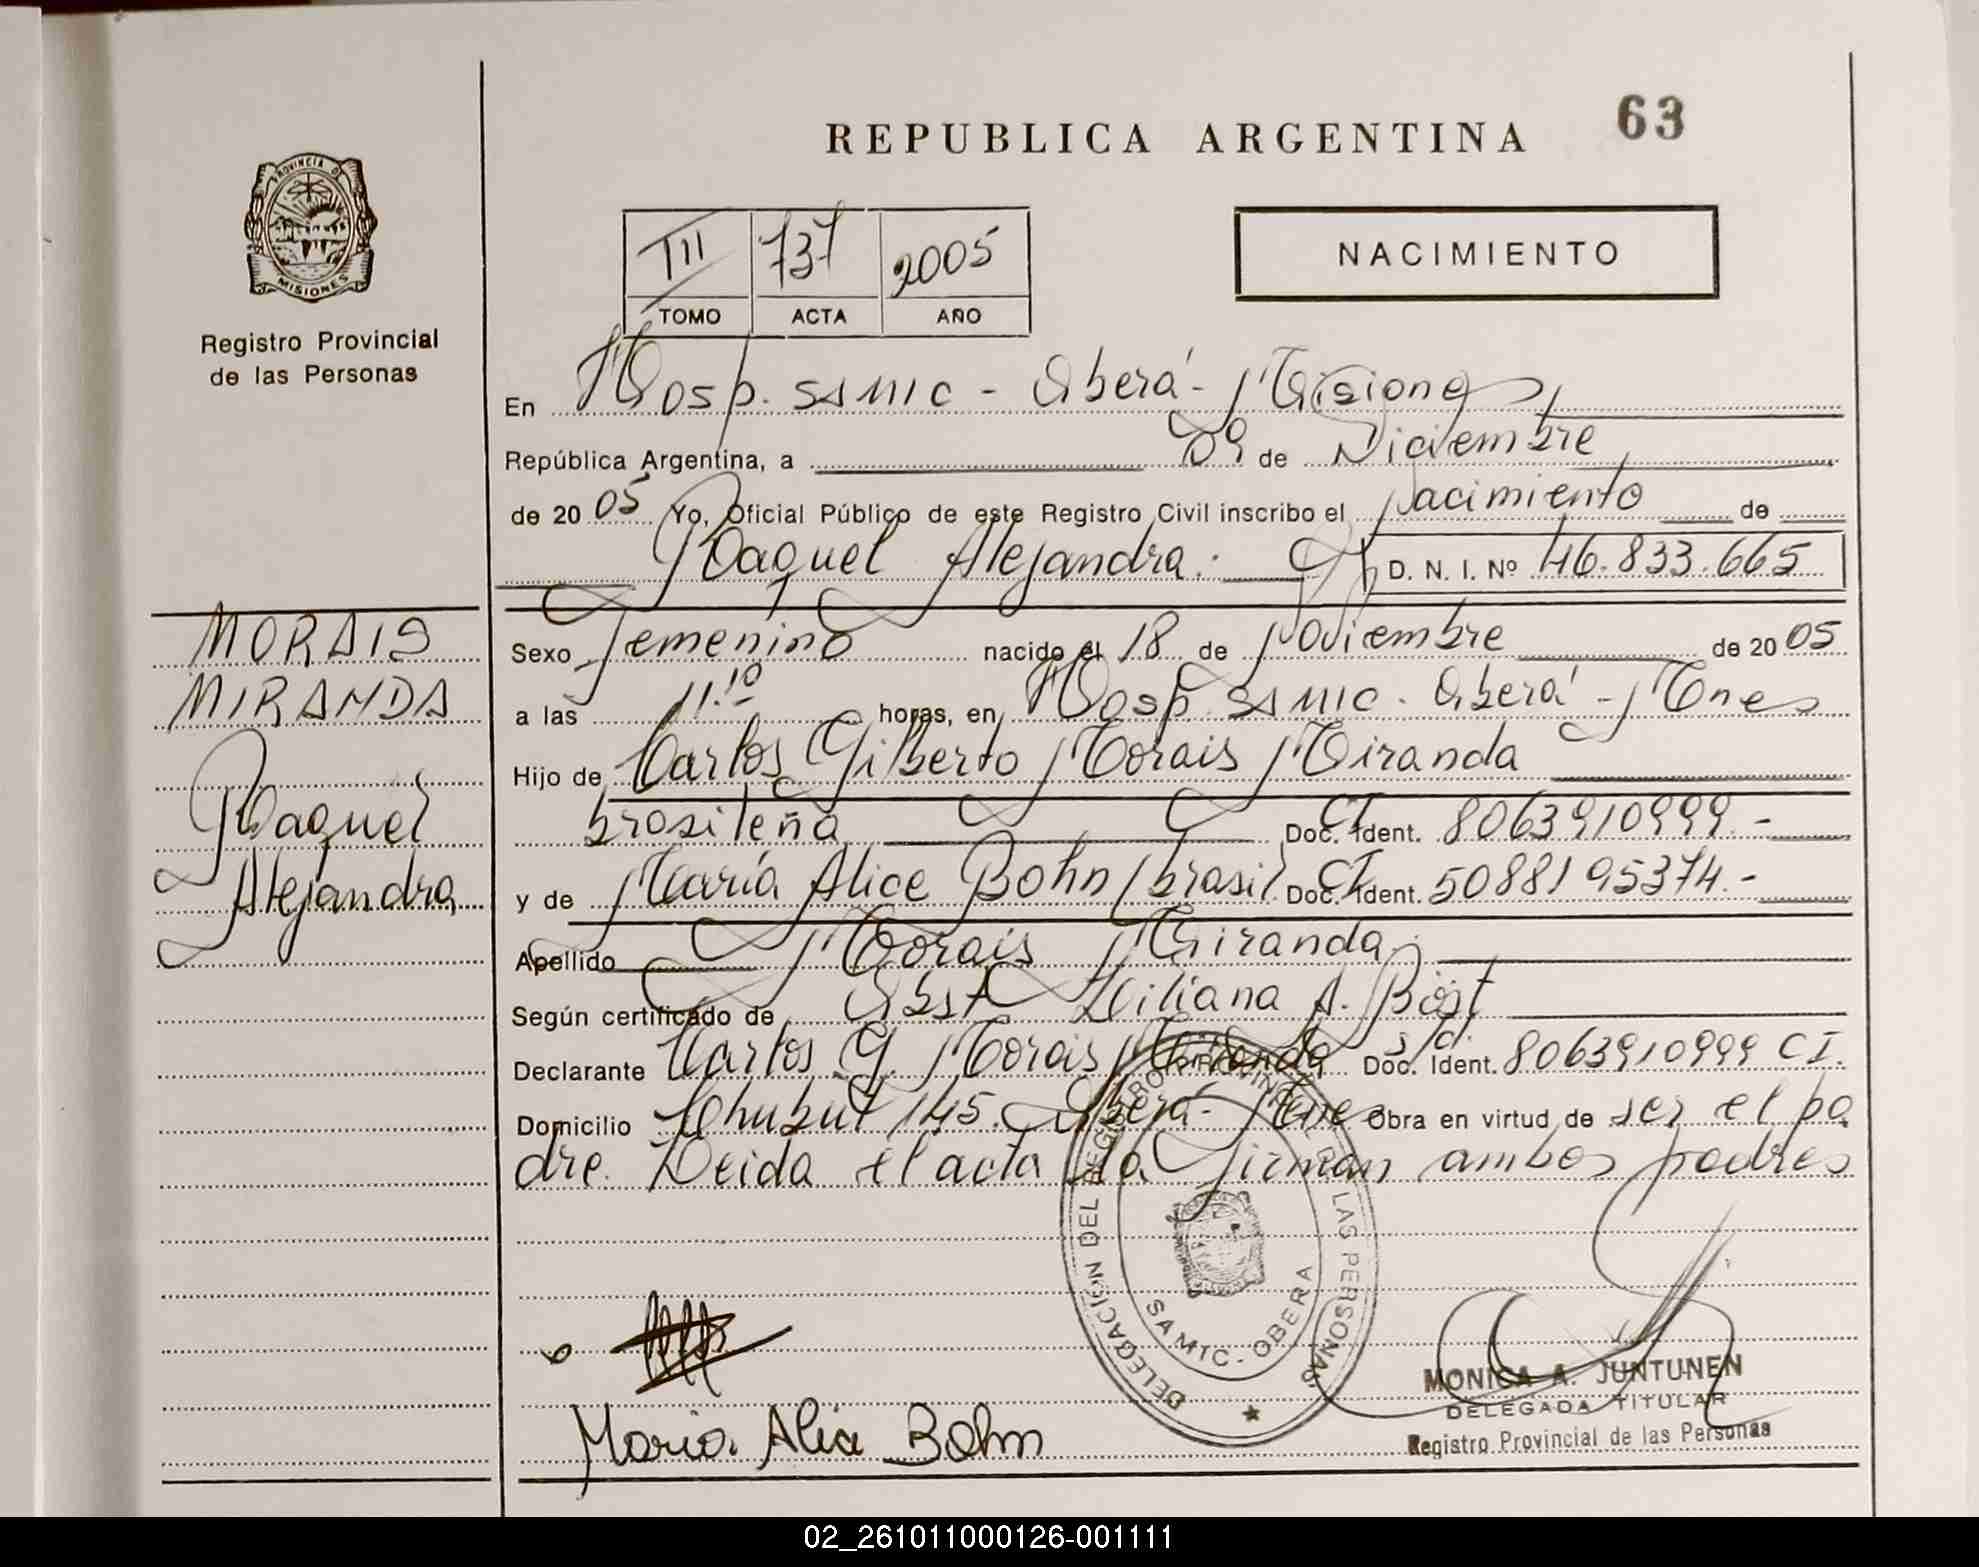 63
REPUBLICA ARGENTINA
PROVINCIA DE
MISIONES
Registro Provincial
de las Personas
III 737 2005
TOMO ACTA AÑO
NACIMIENTO
En Hosp. SAMIC - Oberá - Misiones,
República Argentina, a 09 de Diciembre
de 2005 Yo, Oficial Público de este Registro Civil inscribo el Nacimiento de
Raquel Alejandra. D. N. I. Nº 46.833.665
MORAIS
MIRANDA
Raquel
Alejandra
Sexo Femenino nacido el 18 de Noviembre de 2005
a las 11.10 horas, en Hosp. SAMIC - Oberá - Mnes
Hijo de Carlos Gilberto Morais Miranda
brasileña Doc. Ident. CI 8063910999.-
y de María Alice Bohn / brasil. Doc. Ident. CI 5088195374.-
Apellido Morais Miranda.
Según certificado de Obst Liliana A. Böst
Declarante Carlos G. Morais Miranda s/d. Doc. Ident. 8063910999 CI.
Domicilio Chubut 145. Oberá - Mnes Obra en virtud de ser el pa
dre. Leida el acta la firman ambos padres
DELEGACION DEL REGISTRO PROVINCIAL DE LAS PERSONAS
SAMIC - OBERA
Maria Alice Bohn
MONICA A. JUNTUNEN
DELEGADA TITULAR
Registro Provincial de las Personas
02_261011000126-001111